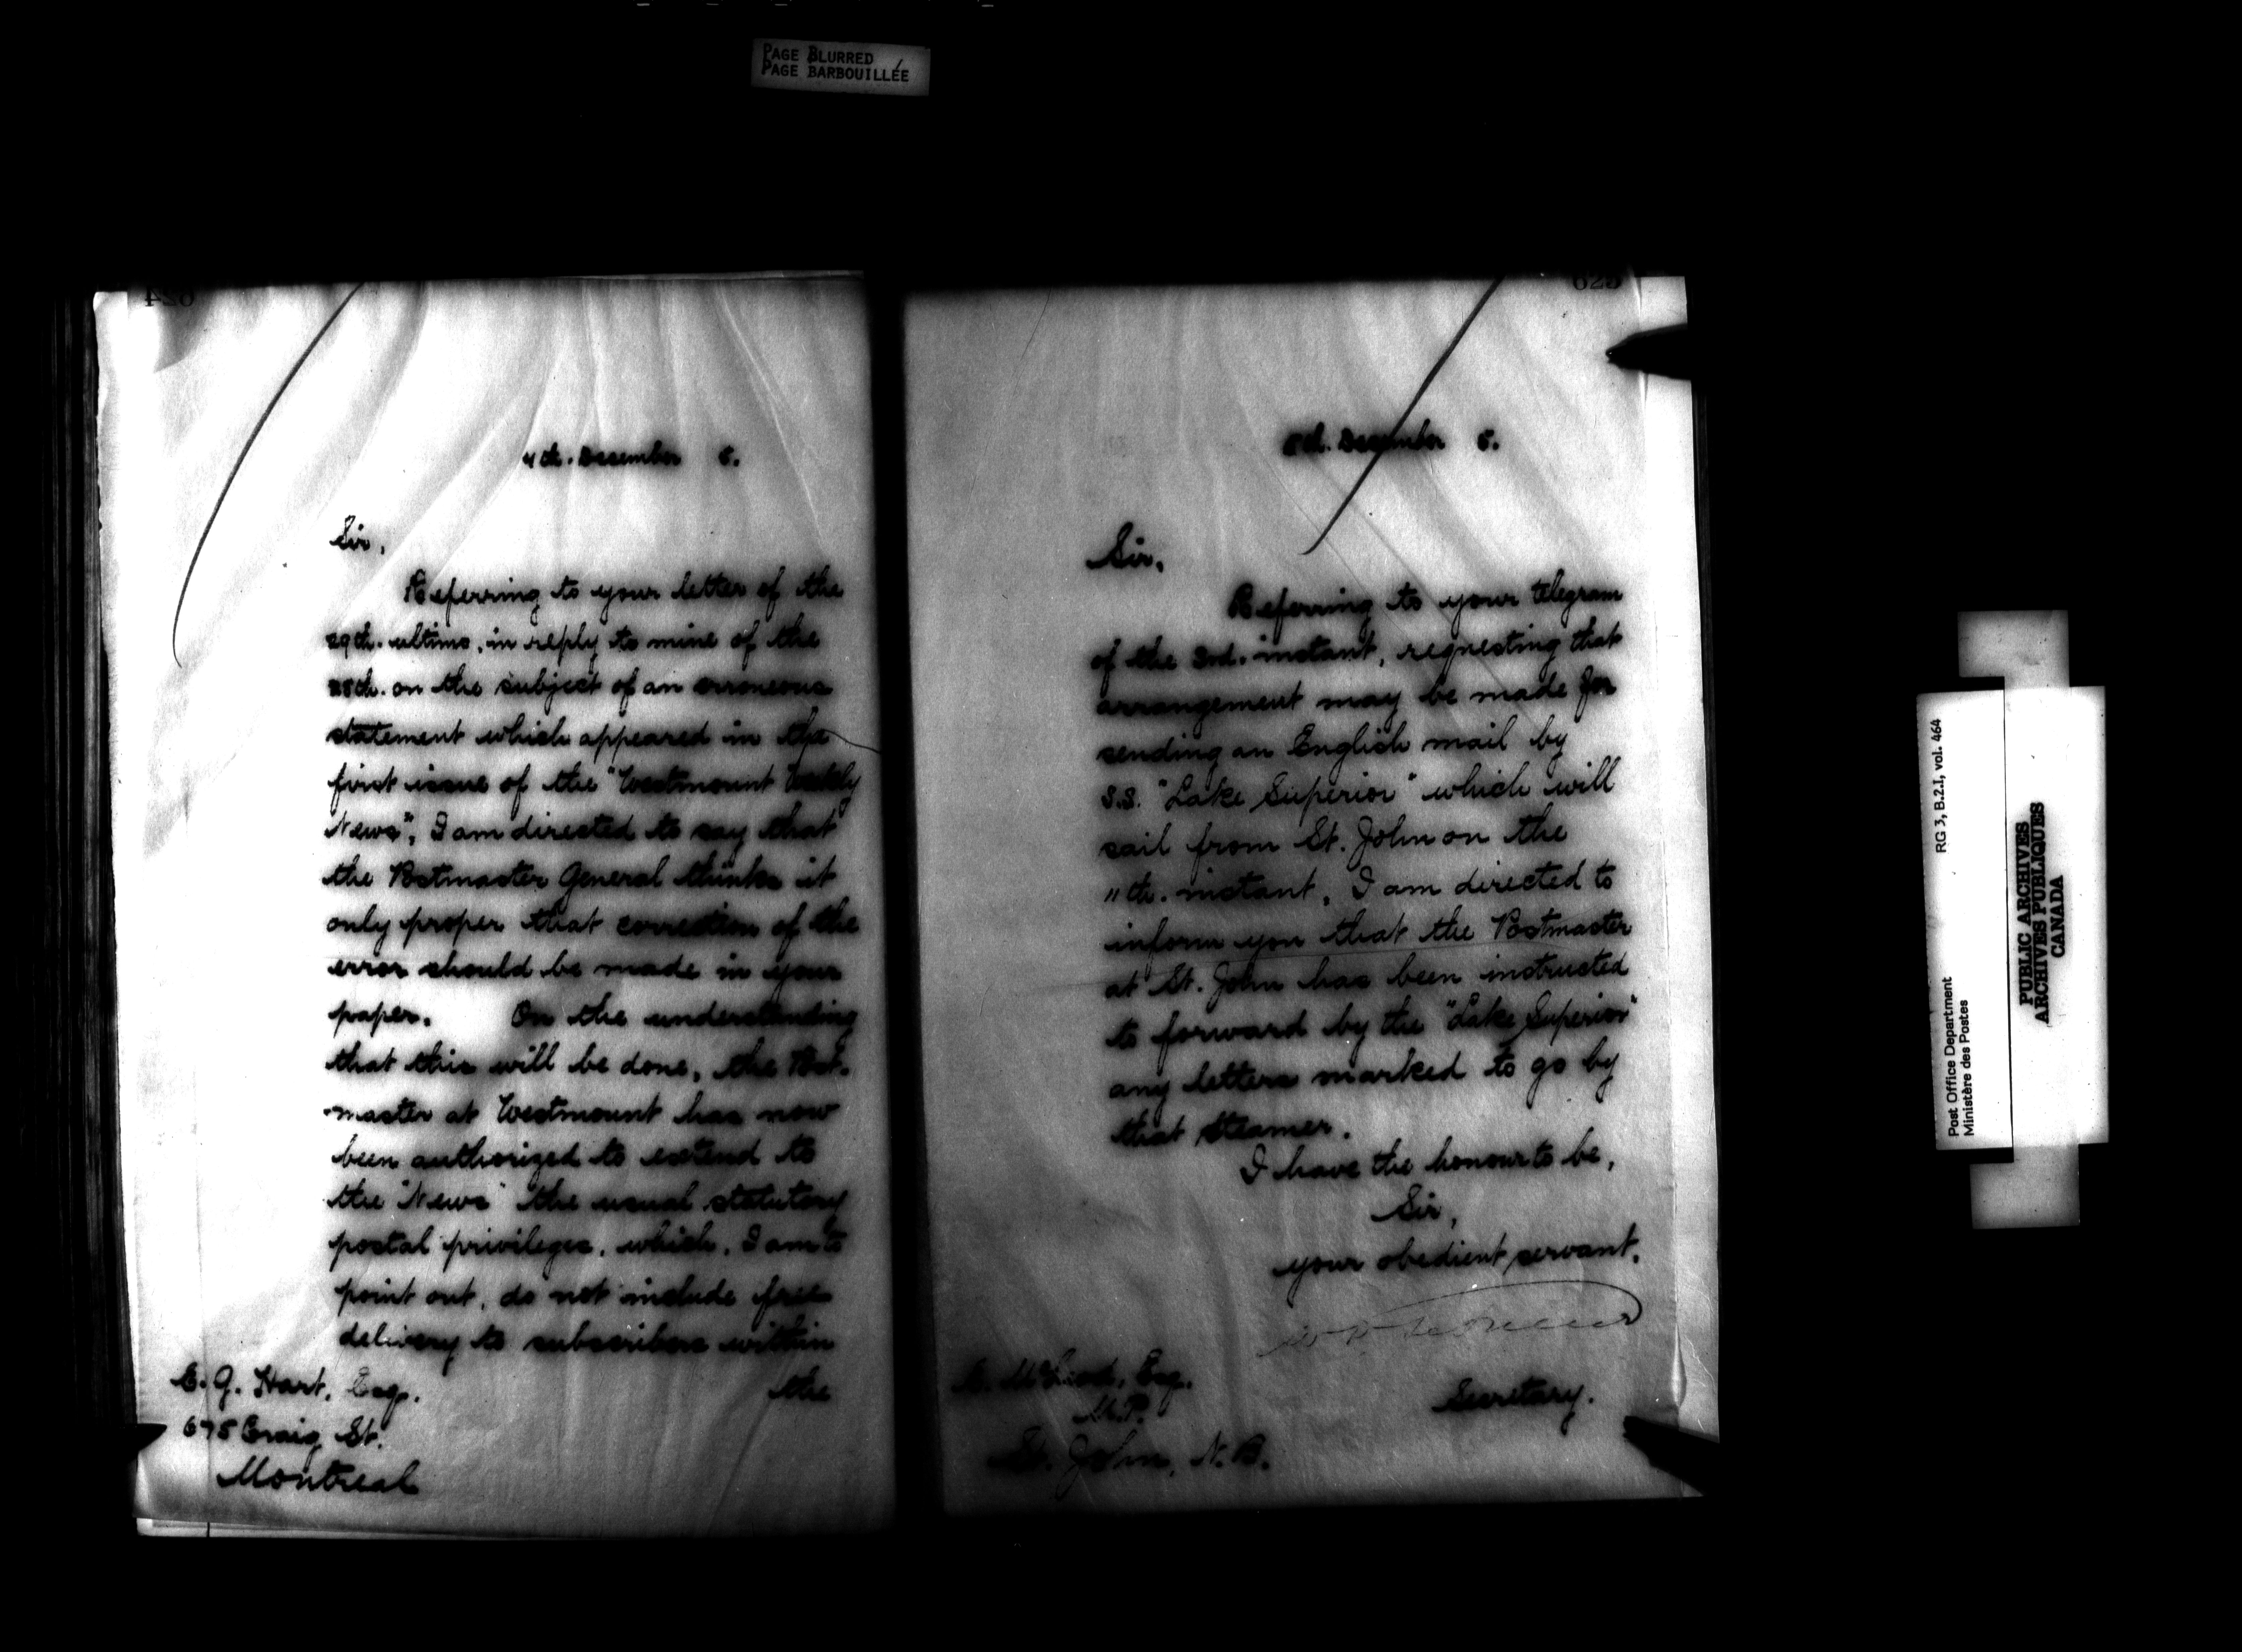 PAGE BLURRED
PAGE BARBOUILLÉE
624
4th. December 5.
Sir,
Referring to your letter of the
29th. ultimo, in reply to mine of the
28th. on the subject of an erroneous
statement which appeared in the
first issue of the "Westmount Weekly
News", I am directed to say that
the Postmaster General thinks it
only proper that correction of the
error should be made in your
paper. On the understanding
that this will be done, the Post-
master at Westmount has now
been authorized to extend to
the "News" the usual statutory
postal privileges, which, I am to
point out, do not include free
delivery to subscribers within
the
E. G. Hart, Esq.
675 Craig St.
Montreal
625
5th. December 5.
Sir,
Referring to your telegram
of the 3rd. instant, requesting that
arrangement may be made for
sending an English mail by
S.S. "Lake Superior" which will
sail from St. John on the
11th. instant, I am directed to
inform you that the Postmaster
at St. John has been instructed
to forward by the "Lake Superior"
any letters marked to go by
that steamer.
I have the honour to be,
Sir,
your obedient servant,
Secretary.
Esq.
M.P.
St. John, N.B.
RG 3, B.2.1, vol. 464
Post Office Department
Ministère des Postes
PUBLIC ARCHIVES
ARCHIVES PUBLIQUES
CANADA